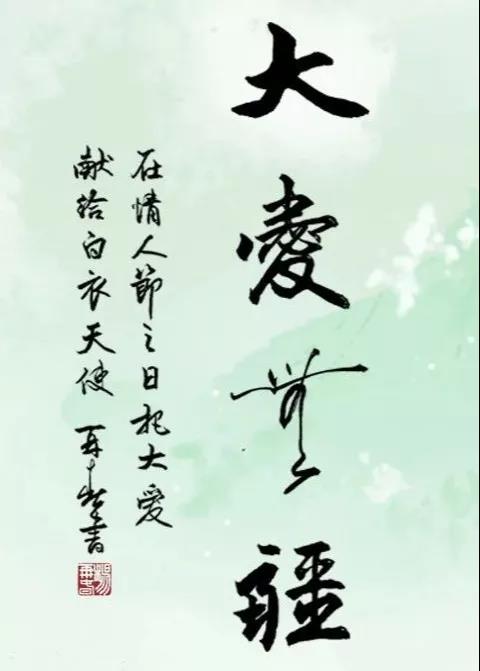 大愛無疆
在情人節之日把大愛
献给白衣天使 再春書